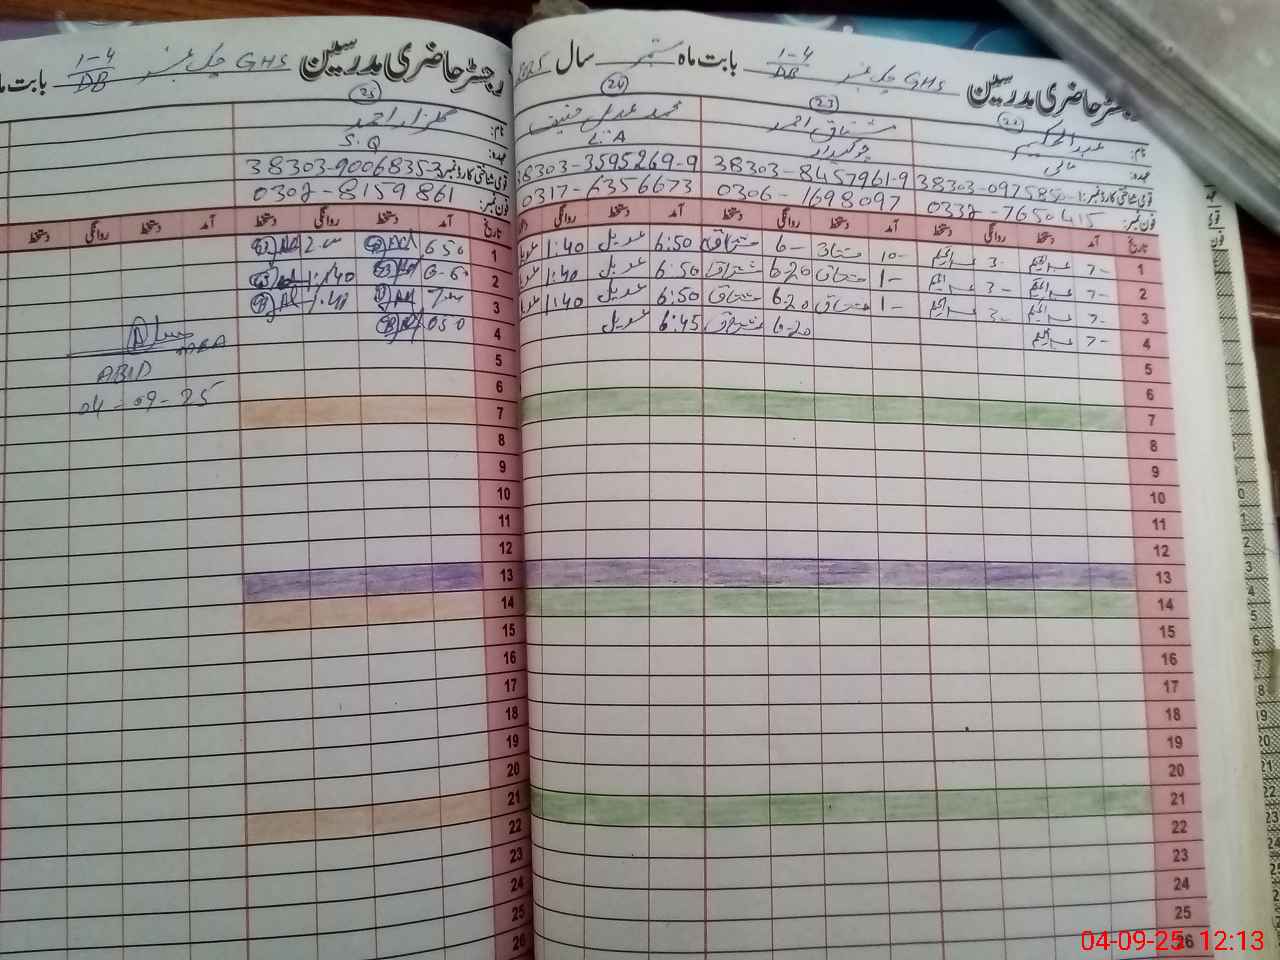 رجسٹر حاضری مدرسین GHS چک نمبر 1-4/DB بابت ماہ ستمبر سال 2025
22 23 24
نام: عبدالحکیم مشتاق احمد محمد عدیل حنیف
عہدہ: مالی چوکیدار L.A
قومی شناختی کارڈ نمبر: 38303-8457961-9 38303-3595269-9
فون نمبر: 0332-7650415 0306-1698097 0317-6356673
تاریخ آمد دستخط روانگی دستخط آمد دستخط روانگی دستخط آمد دستخط روانگی
1 7- 3- 10- مشتاق 6- مشتاق 6:50 عدیل 1:40
2 7- 3- 1- مشتاق 6-20 مشتاق 6:50 عدیل 1:40
3 7- 3- 1- مشتاق 6-20 مشتاق 6:50 عدیل 1:40
4 7- 6-20 مشتاق 6:45 عدیل
5
6
7
8
9
10
11
12
13
14
15
16
17
18
19
20
21
22
23
24
25
26
رجسٹر حاضری مدرسین GHS چک نمبر 1-4/DB بابت ماہ
25
گلزار احمد
S.Q
قومی شناختی کارڈ نمبر: 38303-9006835-3
فون نمبر: 0302-8159861
تاریخ آمد دستخط روانگی دستخط آمد دستخط روانگی دستخط
1 6 50
2 1:40
3
4
5
6
7
8
9
10
11
12
13
14
15
16
17
18
19
20
21
22
23
24
25
26
MEA
ABID
04-09-25
04-09-25 12:13